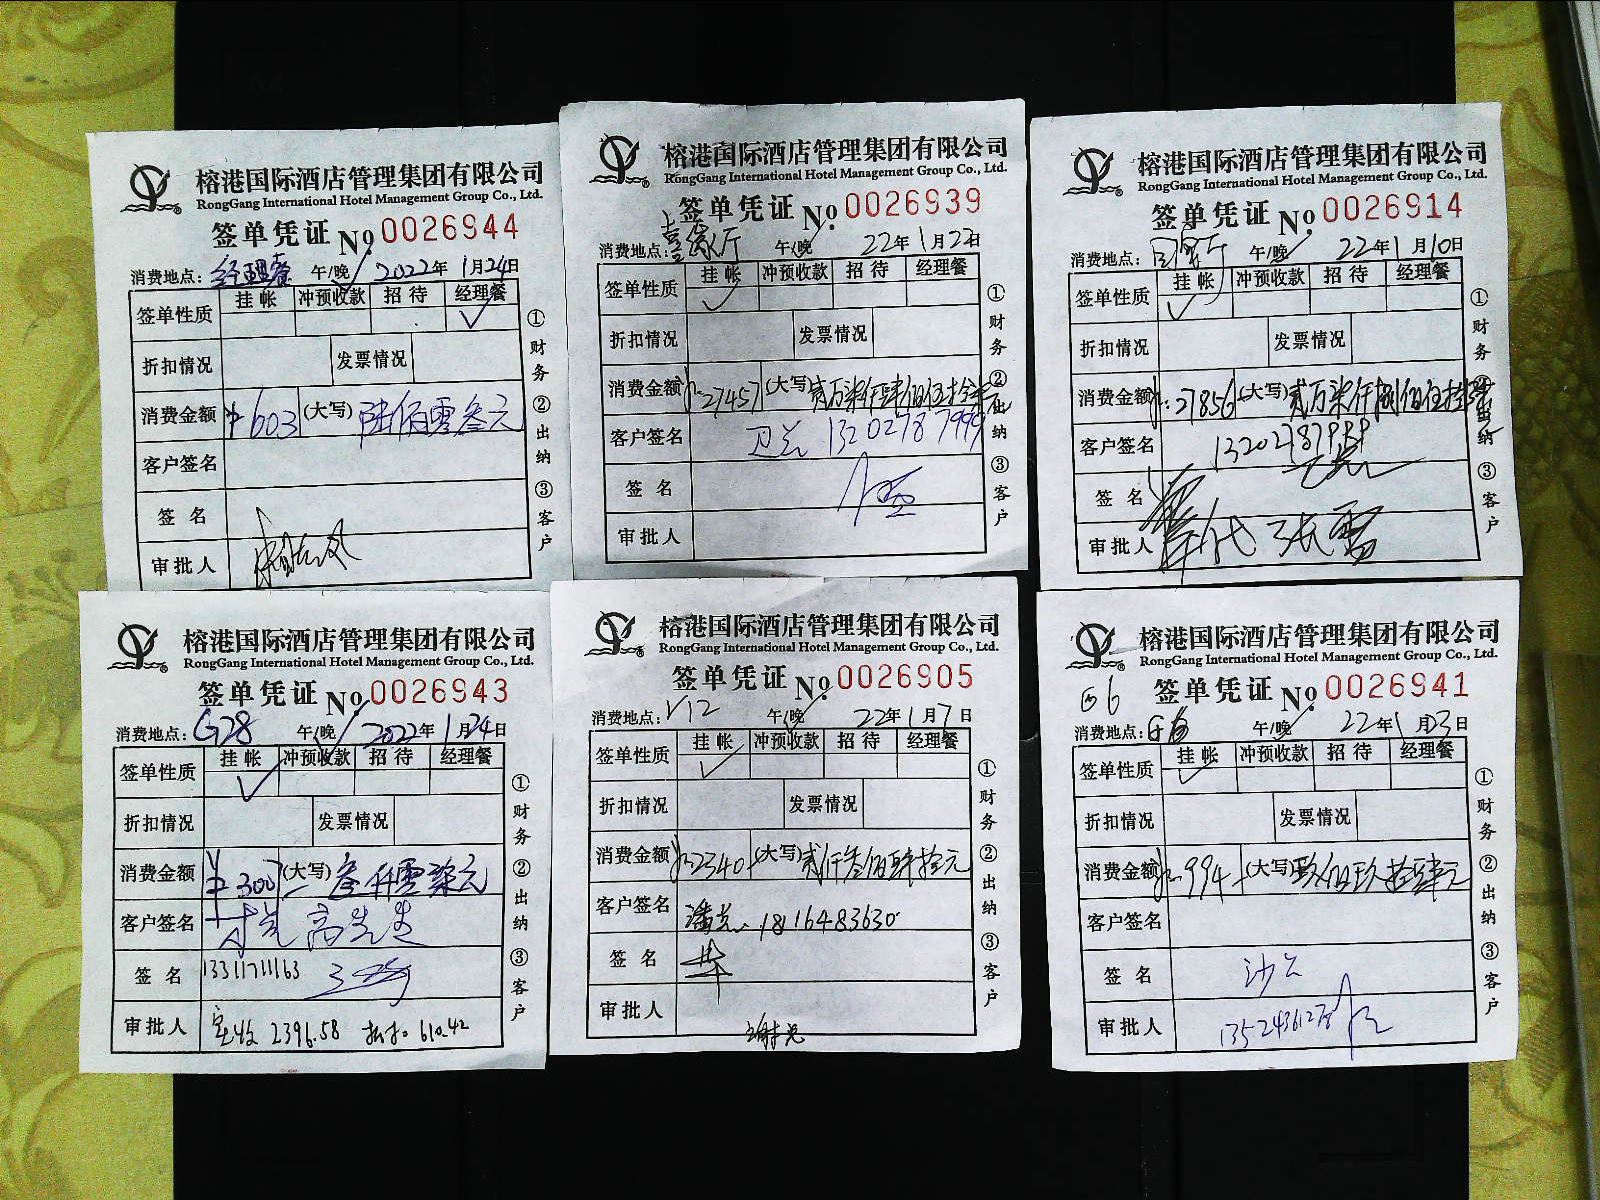 榕港国际酒店管理集团有限公司
RongGang International Hotel Management Group Co., Ltd.
签单凭证 № 0026944
消费地点: 经理餐 午/晚 2022年1月24日
签单性质 挂帐 冲预收款 招待 经理餐
折扣情况 发票情况
消费金额 ¥603 (大写) 陆佰零叁元
客户签名
签名
审批人
①财务②出纳③客户
榕港国际酒店管理集团有限公司
RongGang International Hotel Management Group Co., Ltd.
签单凭证 № 0026939
消费地点: 午/晚 22年1月22日
签单性质 挂帐 冲预收款 招待 经理餐
折扣情况 发票情况
消费金额 ¥:27457 (大写) 贰万柒仟肆佰伍拾柒元
客户签名 13202787999
签名
审批人
①财务②出纳③客户
榕港国际酒店管理集团有限公司
RongGang International Hotel Management Group Co., Ltd.
签单凭证 № 0026914
消费地点: 午/晚 22年1月10日
签单性质 挂帐 冲预收款 招待 经理餐
折扣情况 发票情况
消费金额 ¥:27856 (大写) 贰万柒仟捌佰伍拾陆
客户签名
签名
审批人 代 张雪
①财务②出纳③客户
榕港国际酒店管理集团有限公司
RongGang International Hotel Management Group Co., Ltd.
签单凭证 № 0026943
消费地点: G28 午/晚 2022年1月24日
签单性质 挂帐 冲预收款 招待 经理餐
折扣情况 发票情况
消费金额 ¥3007 (大写) 叁仟零柒元
客户签名 高先生
签名 13311711163
审批人 实收 2396.58 折扣 610.42
①财务②出纳③客户
榕港国际酒店管理集团有限公司
RongGang International Hotel Management Group Co., Ltd.
签单凭证 № 0026905
消费地点: V12 午/晚 22年1月7日
签单性质 挂帐 冲预收款 招待 经理餐
折扣情况 发票情况
消费金额 ¥:2340 (大写) 贰仟叁佰肆拾元
客户签名 潘总 18116483630
签名
审批人
①财务②出纳③客户
榕港国际酒店管理集团有限公司
RongGang International Hotel Management Group Co., Ltd.
G6 签单凭证 № 0026941
消费地点: 午/晚 22年1月23日
签单性质 挂帐 冲预收款 招待 经理餐
折扣情况 发票情况
消费金额 ¥:994 (大写) 玖佰玖拾肆元
客户签名
签名 沙总
审批人
①财务②出纳③客户